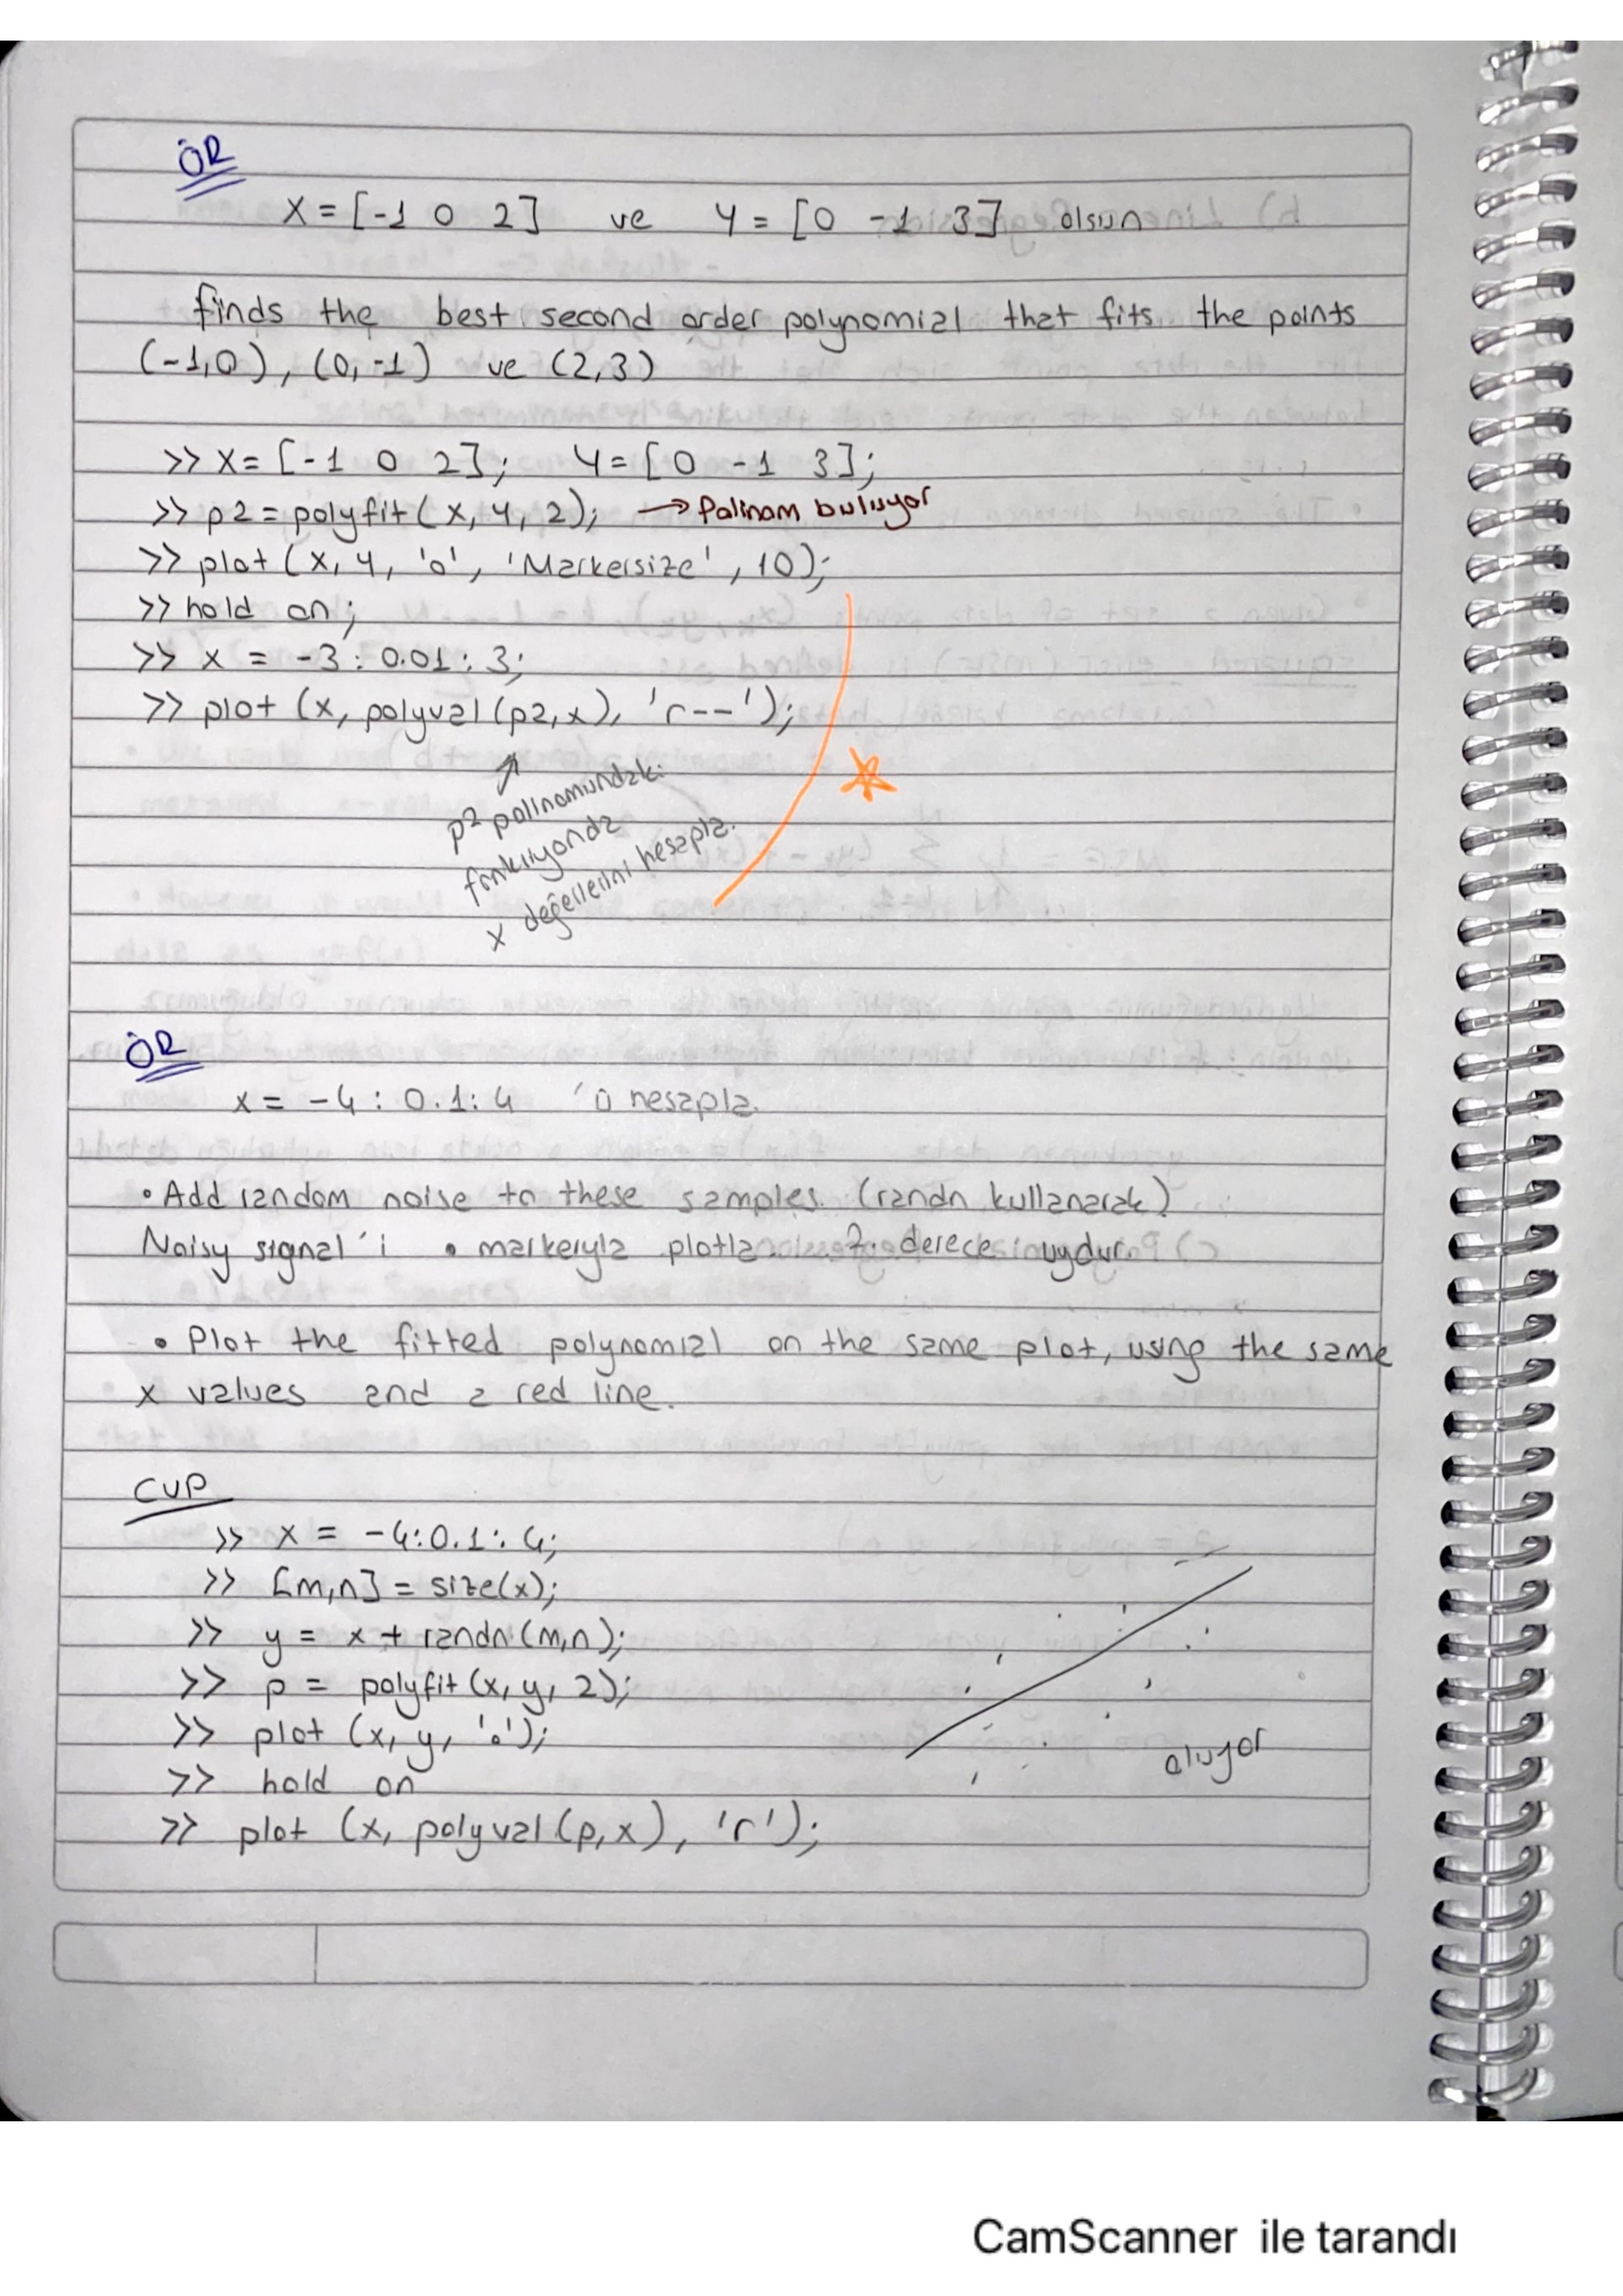 ÖR
X = [-1 0 2] ve Y = [0 -1 3] olsun
finds the best second order polynomial that fits the points
(-1,0), (0,-1) ve (2,3)
>> X = [-1 0 2]; Y = [0 -1 3];
>> p2 = polyfit(X, Y, 2); → Polinom buluyor
>> plot (X, Y, 'o', 'Markersize', 10);
>> hold on;
>> x = -3 : 0.01 : 3;
>> plot (x, polyval(p2,x), 'r--');
p2 polinomundaki
fonksiyonda
x değerlerini hesapla.
ÖR
x = -4 : 0.1 : 4 'ü hesapla.
• Add random noise to these samples. (randn kullanarak)
Noisy signal'i • markerıyla plotla. 2. derece uydur.
• Plot the fitted polynomial on the same plot, using the same
x values and a red line.
CVP
>> x = -4:0.1:4;
>> [m,n] = size(x);
>> y = x + randn(m,n);
>> p = polyfit(x, y, 2);
>> plot (x, y, '.');
>> hold on
>> plot (x, polyval(p,x), 'r');
oluyor
CamScanner ile tarandı